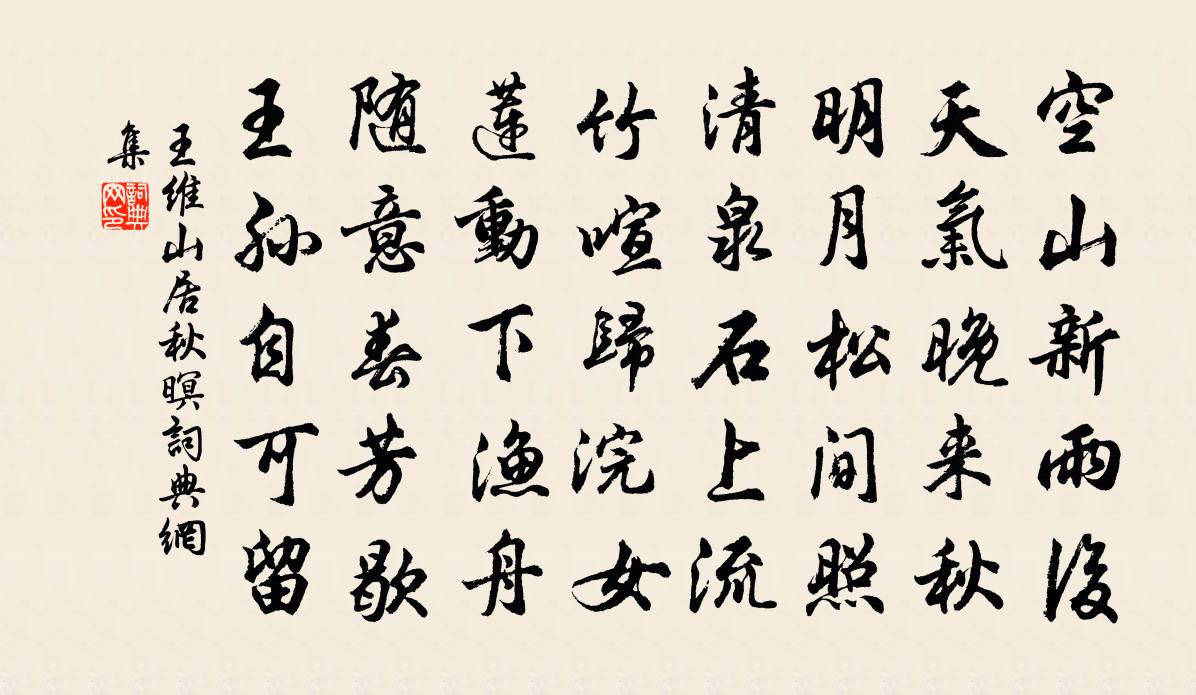 空山新雨後
天氣晚来秋
明月松间照
清泉石上流
竹喧歸浣女
蓮動下漁舟
随意春芳歇
王孫自可留
王維山居秋暝詞典網
集
詞典
网印